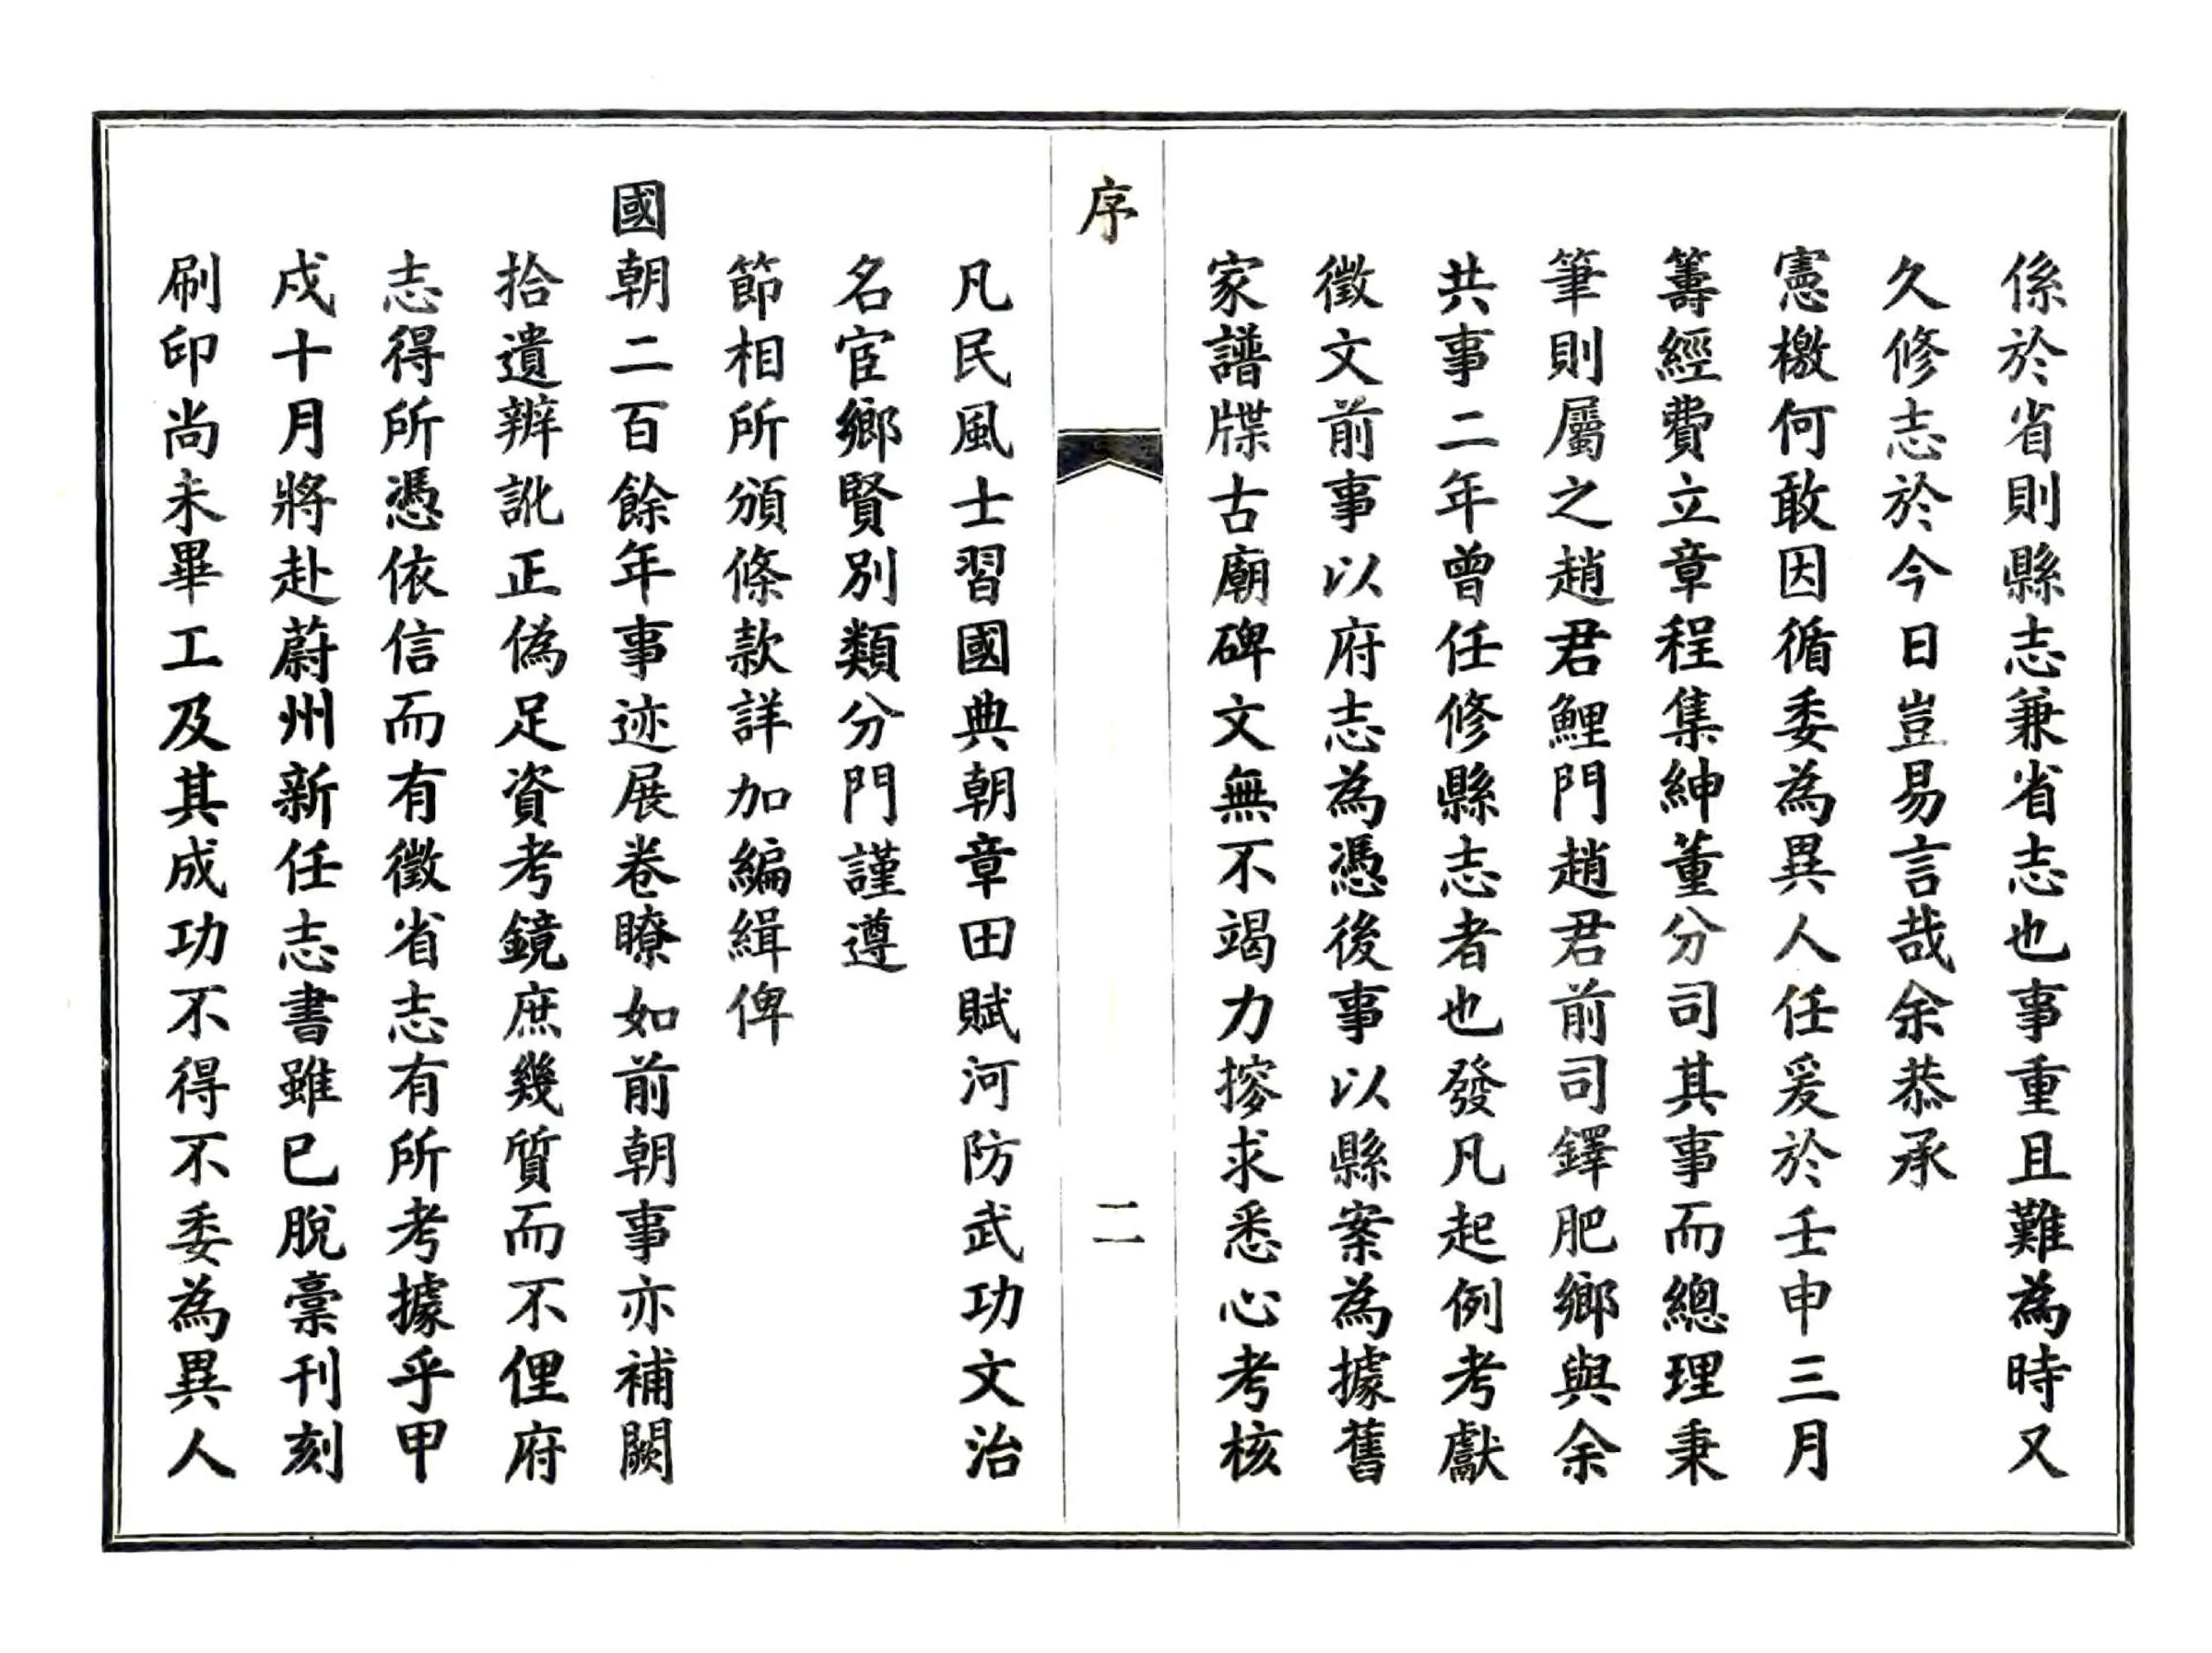 係於省則縣志兼省志也事重且難為時又
久修志於今日豈易言哉余恭承
憲檄何敢因循委為異人任爰於壬申三月
籌經費立章程集紳董分司其事而總理秉
筆則屬之趙君鯉門趙君前司鐸肥鄉與余
共事二年曾任修縣志者也發凡起例考獻
徵文前事以府志為憑後事以縣案為據舊
家譜牒古廟碑文無不竭力搜求悉心考核
序
二
凡民風士習國典朝章田賦河防武功文治
名宦鄉賢別類分門謹遵
節相所頒條款詳加編緝俾
國朝二百餘年事迹展卷瞭如前朝事亦補闕
拾遺辨訛正偽足資考鏡庶幾質而不俚府
志得所憑依信而有徵省志有所考據乎甲
戌十月將赴蔚州新任志書雖已脫稾刊刻
刷印尚未畢工及其成功不得不委為異人